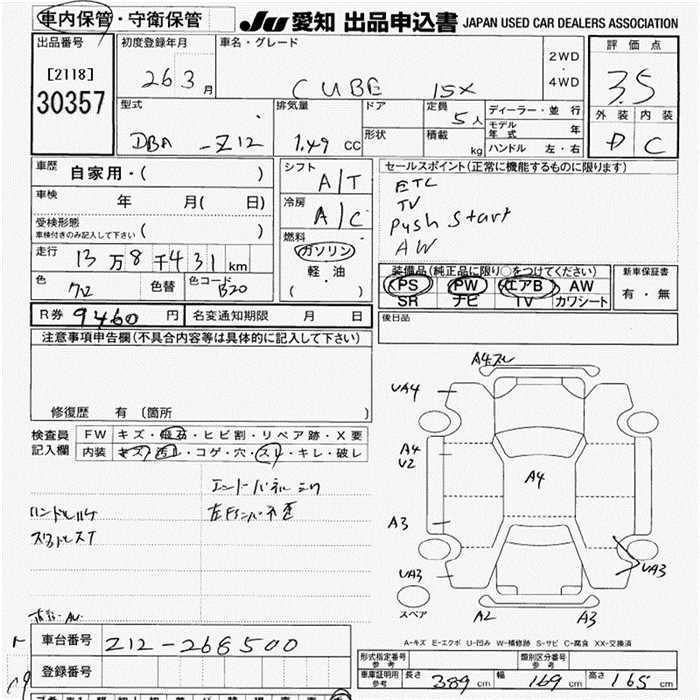 車内保管・守衛保管
JU 愛知 出品申込書 JAPAN USED CAR DEALERS ASSOCIATION
出品番号
[2118]
30357
初度登録年月
26 3 月
車名・グレード
CUBE 15X
2WD
・
4WD
評価点
3.5
外装 内装
D C
型式
DBA -Z12
排気量
1.49 cc
ドア
形状
定員
5人
積載
kg
ディーラー・並行
モデル年式 年
ハンドル 左・右
車歴
自家用・( )
車検
年 月( 日)
受検形態
車検付きのみ記入して下さい ( )
走行
13万8千431km
色
色替
色コード
B20
シフト
A/T
冷房
A/C
燃料
ガソリン
軽・油
( )
セールスポイント(正常に機能するものに限ります)
ETC
TV
Push Start
AW
装備品(純正品に限り○をつけてください)
PS PW エアB AW
SR ナビ TV カワシート
新車保証書
有・無
R券 9460 円
名変通知期限 月 日
後日品
注意事項申告欄(不具合内容等は具体的に記入して下さい)
修復歴 有 〔箇所 〕
検査員記入欄
FW キズ・飛石・ヒビ割・リペア跡・X要
内装 キズ・汚レ・コゲ・穴・スレ・キレ・破レ
A4スレ
UA4
A4
U2
A4
A3
UA3
UA3
スペア
A2 A3
A-キズ E-エクボ U-凹み W-補修跡 S-サビ C-腐食 XX-交換済
車台番号
Z12-268500
登録番号
型式指定番号
参考
類別区分番号
参考
車庫証明用
参考
長さ 389 cm 幅 169 cm 高さ 165 cm